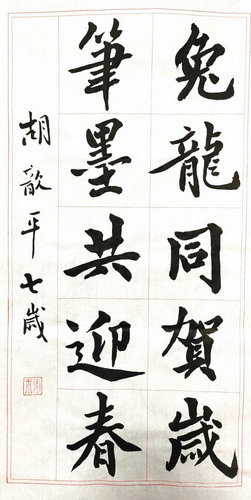 兔龍同賀歲
筆墨共迎春
胡歆平七歲